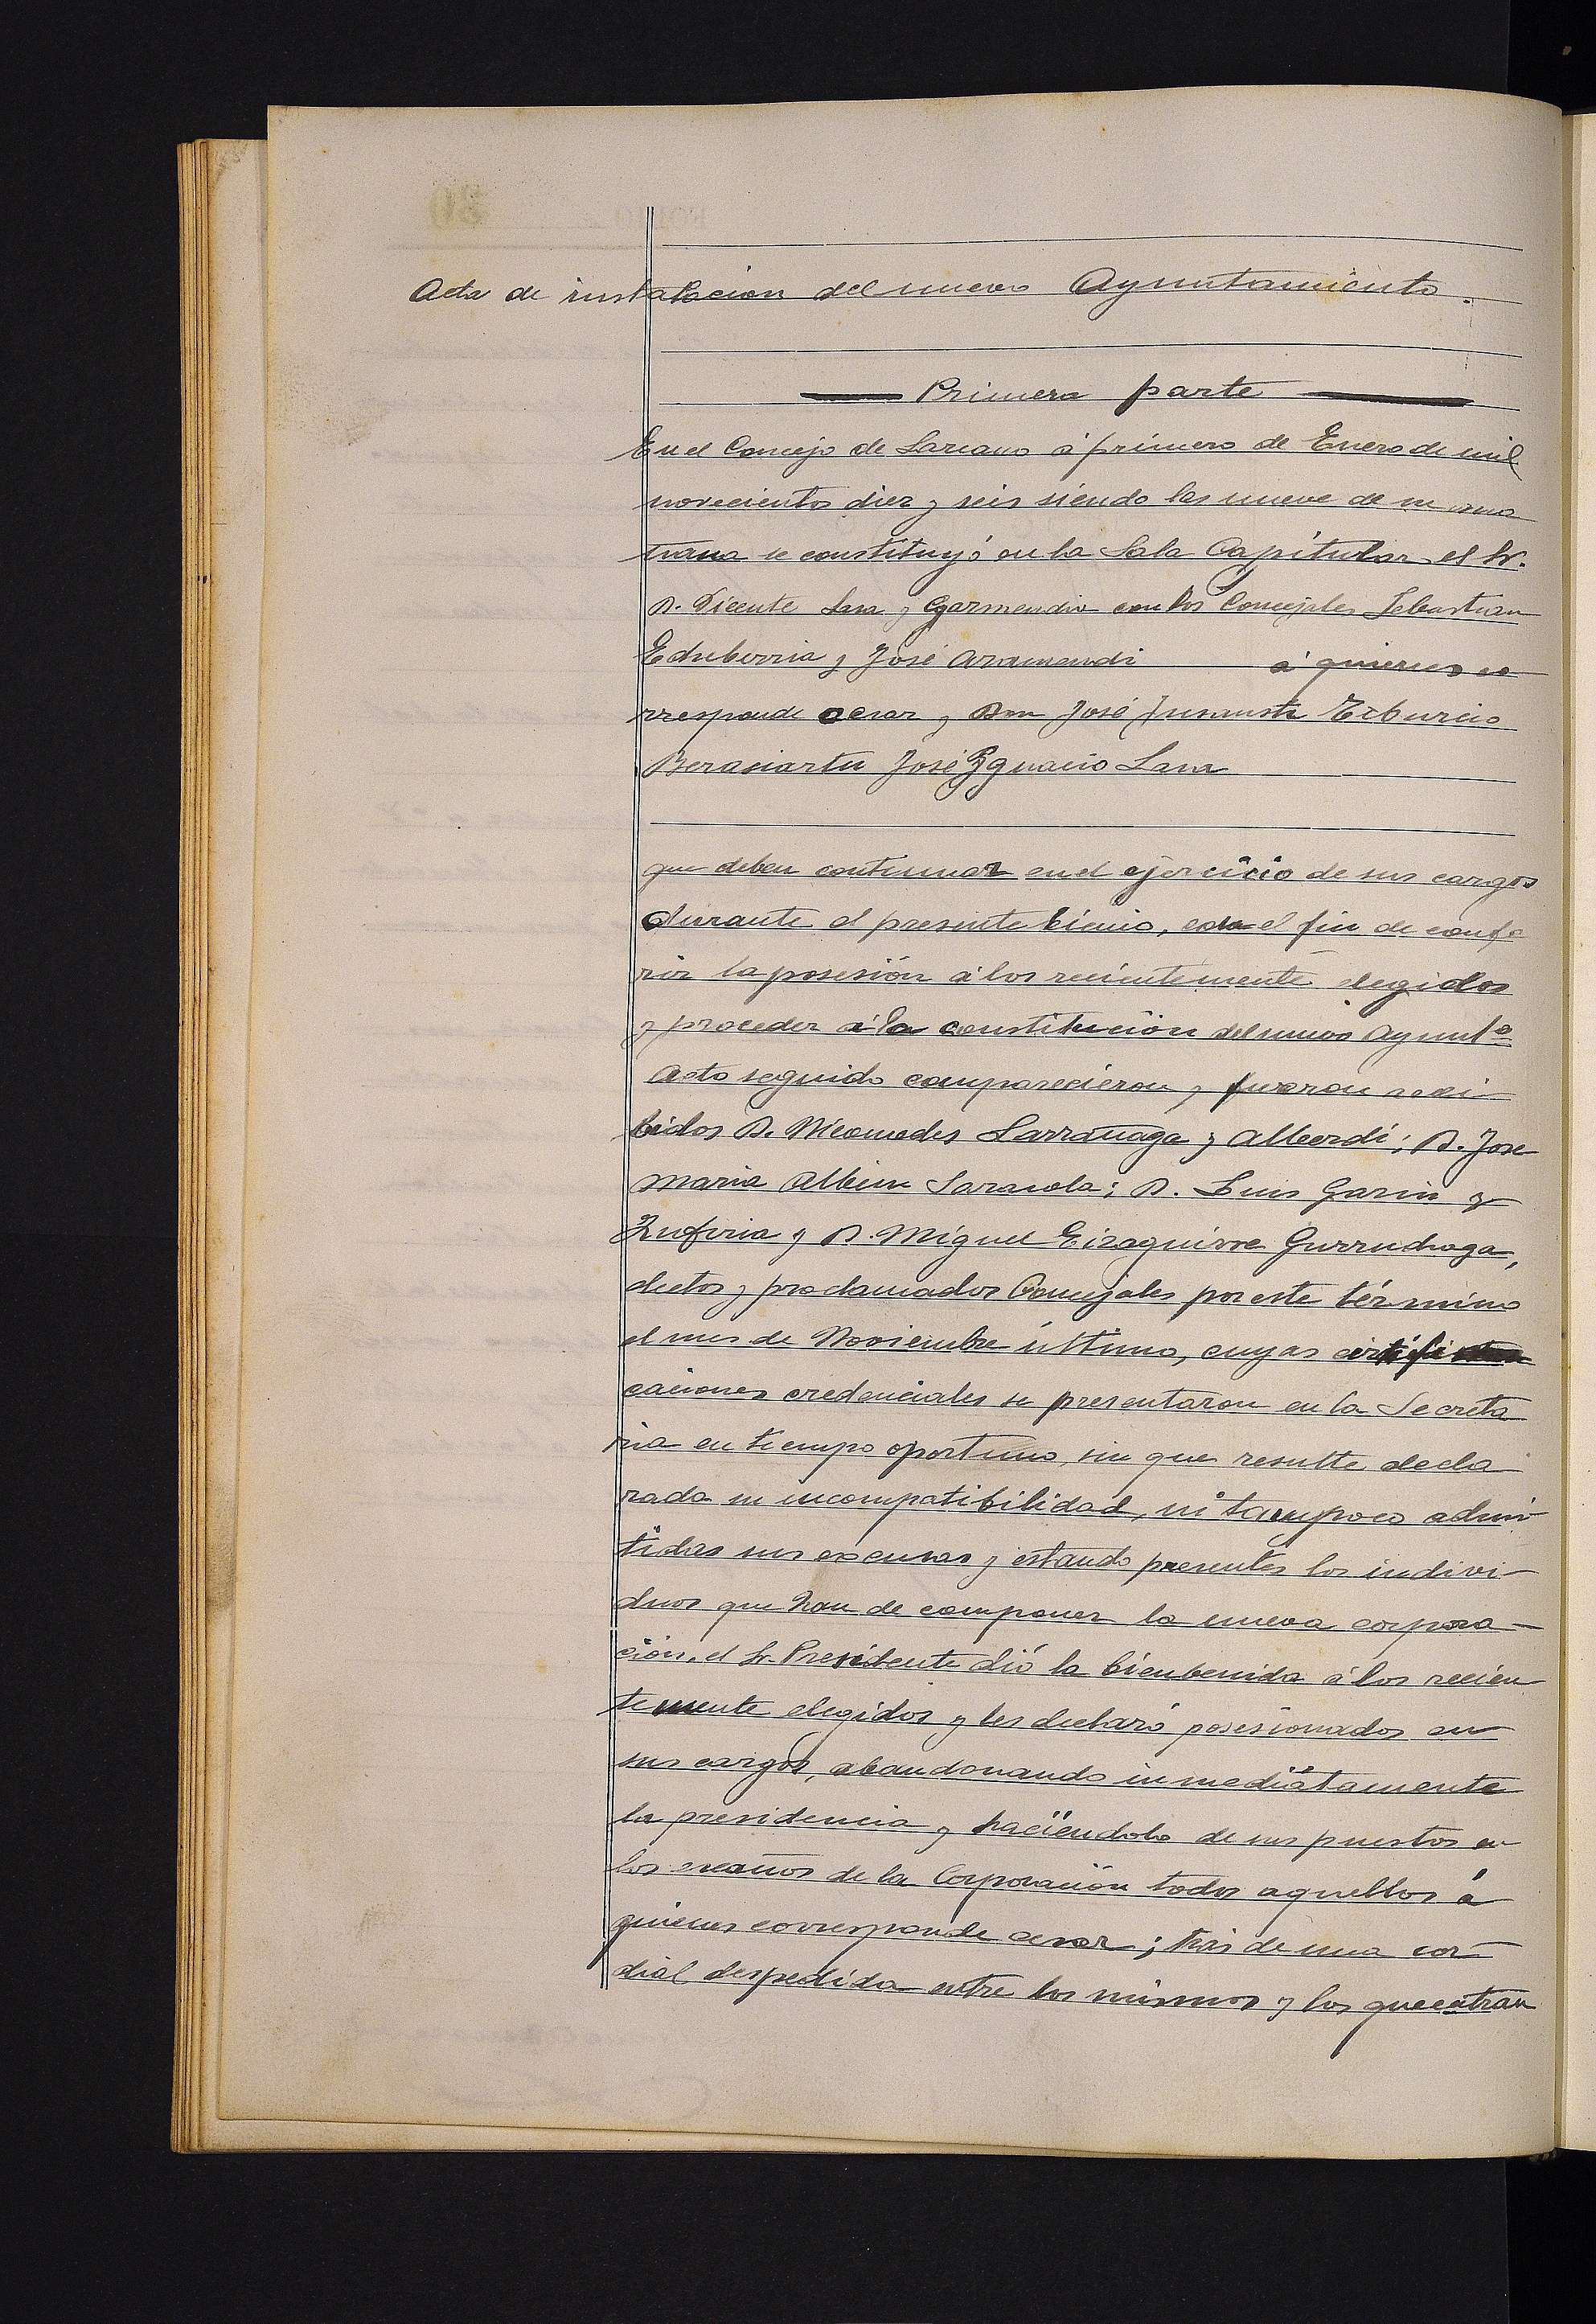 Acta de instalacion del nuevo Ayuntamiento.
Primera parte
En el Concejo de Larcano á primero de Enero de mil
novecientos diez y seis siendo las nueve de su ma
ñana se constituyó en la Sala Capitular el Sr.
D. Vicente Lasa y Garmendia con los Concejales Sebastian
Echeberria y José Aramendi á quienes co
rresponde cesar y Don José Tiburcio
Berasiartu José Ygnacio Lasa
que deben continuar en el ejercicio de sus cargos
durante el presente bienio, con el fin de confe
rir la posesión á los recientemente elegidos
y proceder á la constitución del nuevo Ayuntº
Acto seguido comparecieron y fueron reci
bidos D. Nicomedes Larrañaga y Alberdi; D. Jose
Maria Albisu Sarasola; D. Luis Garin y
Zufiria y D. Miguel Eizaguirre Gurruchaga,
electos y proclamados Concejales por este término
el mes de Noviembre último, cuyas certifi
caciones credenciales se presentaron en la Secreta
ria en tiempo oportuno, sin que resulte decla
rada su incompatibilidad, ni tampoco admi
tidas sus excusas y estando presentes los indivi-
duos que han de componer la nueva corpora-
ción, el Sr. Presidente dió la bienbenida á los recien
temente elegidos y les declaró posesionados en
sus cargos, abandonando inmediatamente
la presidencia y haciéndolo de sus puestos en
los escaños de la Corporación todos aquellos á
quienes corresponde cesar; tras de una cor-
dial despedida entre los mismos y los que entran